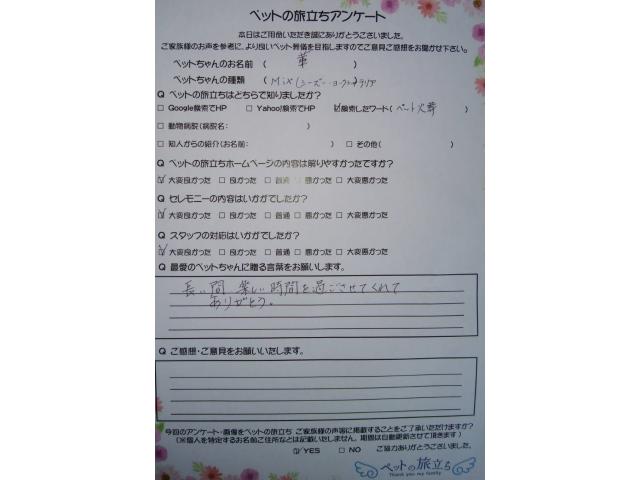 ペットの旅立ちアンケート
本日はご用命いただき誠にありがとうございました。
ご家族様のお声を参考に、より良いペット葬儀を目指しますのでご意見ご感想をお聞かせ下さい。
ペットちゃんのお名前 ( 華 )
ペットちゃんの種類 ( Mix(シーズー・ヨークシャテリア )
Q ペットの旅立ちはどちらで知りましたか?
□ Google検索でHP □ Yahoo!検索でHP ☑検索したワード( ペット火葬 )
□ 動物病院(病院名: )
□ 知人からの紹介(お名前: ) □ その他( )
Q ペットの旅立ちホームページの内容は解りやすかったですか?
☑ 大変良かった □ 良かった □ 普通 □ 悪かった □ 大変悪かった
Q セレモニーの内容はいかがでしたか?
☑ 大変良かった □ 良かった □ 普通 □ 悪かった □ 大変悪かった
Q スタッフの対応はいかがでしたか?
☑ 大変良かった □ 良かった □ 普通 □ 悪かった □ 大変悪かった
Q 最愛のペットちゃんに贈る言葉をお願いします。
長い間 楽しい時間を過ごさせてくれて
ありがとう。
Q ご感想・ご意見をお願いいたします。
今回のアンケート・画像をペットの旅立ち ご家族様の声等に掲載することをご了承いただけますか?
(※個人を特定するお名前ご住所などは記載いたしません。期間は自動更新させて頂きます)
☑ YES □ NO ご協力ありがとうございました。
ペットの旅立ち
Thank you my family